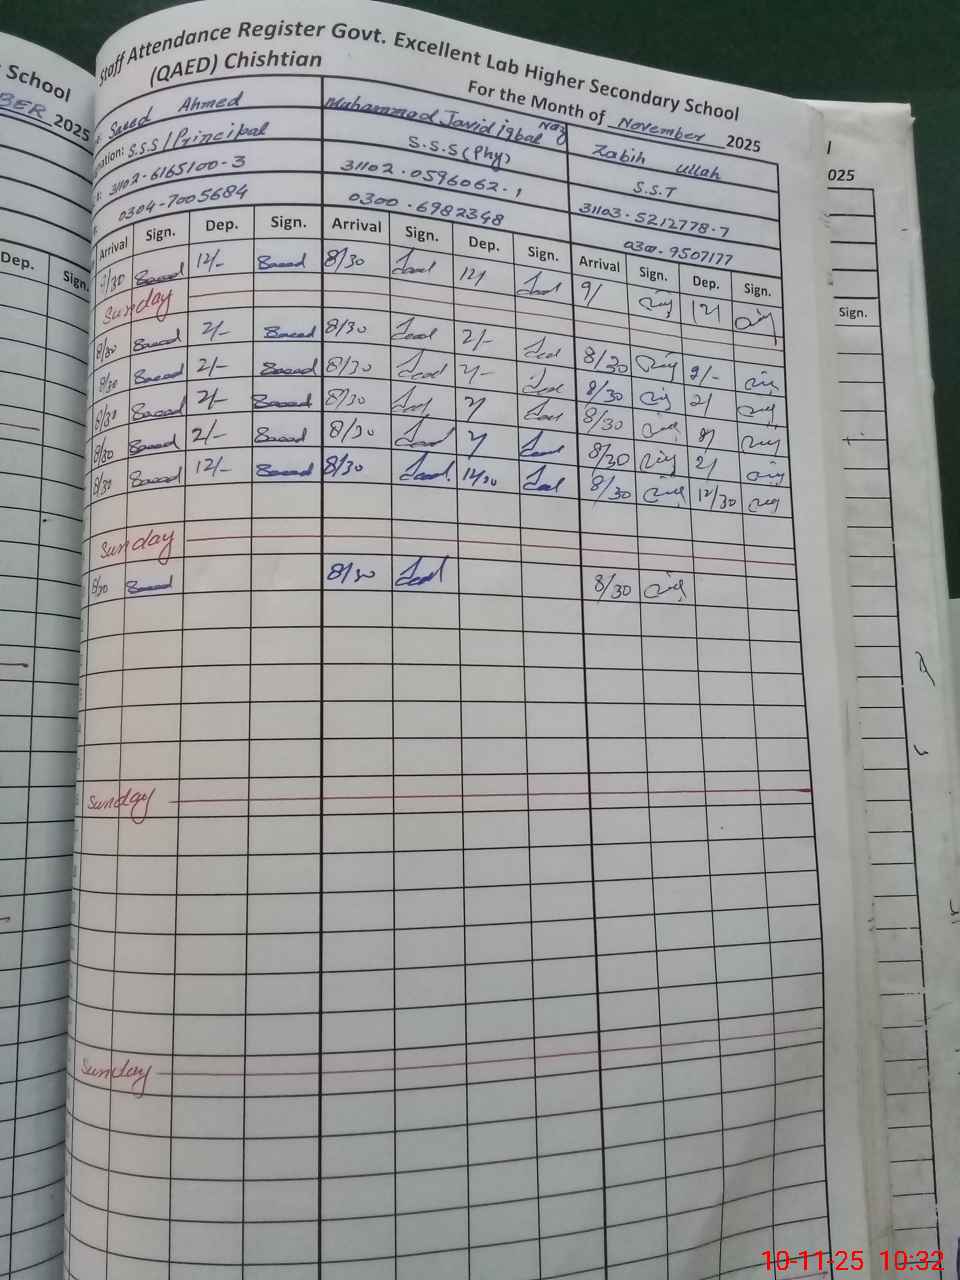 School
BER 2025
Dep. Sign.
Staff Attendance Register Govt. Excellent Lab Higher Secondary School
(QAED) Chishtian
For the Month of November 2025
Saeed Ahmed
Muhammad Javid iqbal Naz
Zabih ullah
nation: S.S.S / Principal
S.S.S (Phy)
S.S.T
31102-6165100-3
31102.0596062.1
31103.5212778.7
0304-7005684
0300.6982348
0300.9507177
Arrival Sign. Dep. Sign. Arrival Sign. Dep. Sign. Arrival Sign. Dep. Sign.
8/30 Saeed 12/- Saeed 8/30 12/ 9/ 12/
Sunday
8/30 Saeed 2/- Saeed 8/30 2/- 8/30 2/-
8/30 Saeed 2/- Saeed 8/30 2/- 8/30 2/
8/30 Saeed 2/- Saeed 8/30 2/ 8/30
8/30 Saeed 2/- Saeed 8/30 2/ 8/30 2/
8/30 Saeed 12/- Saeed 8/30 12/30 8/30 12/30
Sunday
8/30 Saeed 8/30 8/30
Sunday
Sunday
025
Sign.
10-11-25 10:32